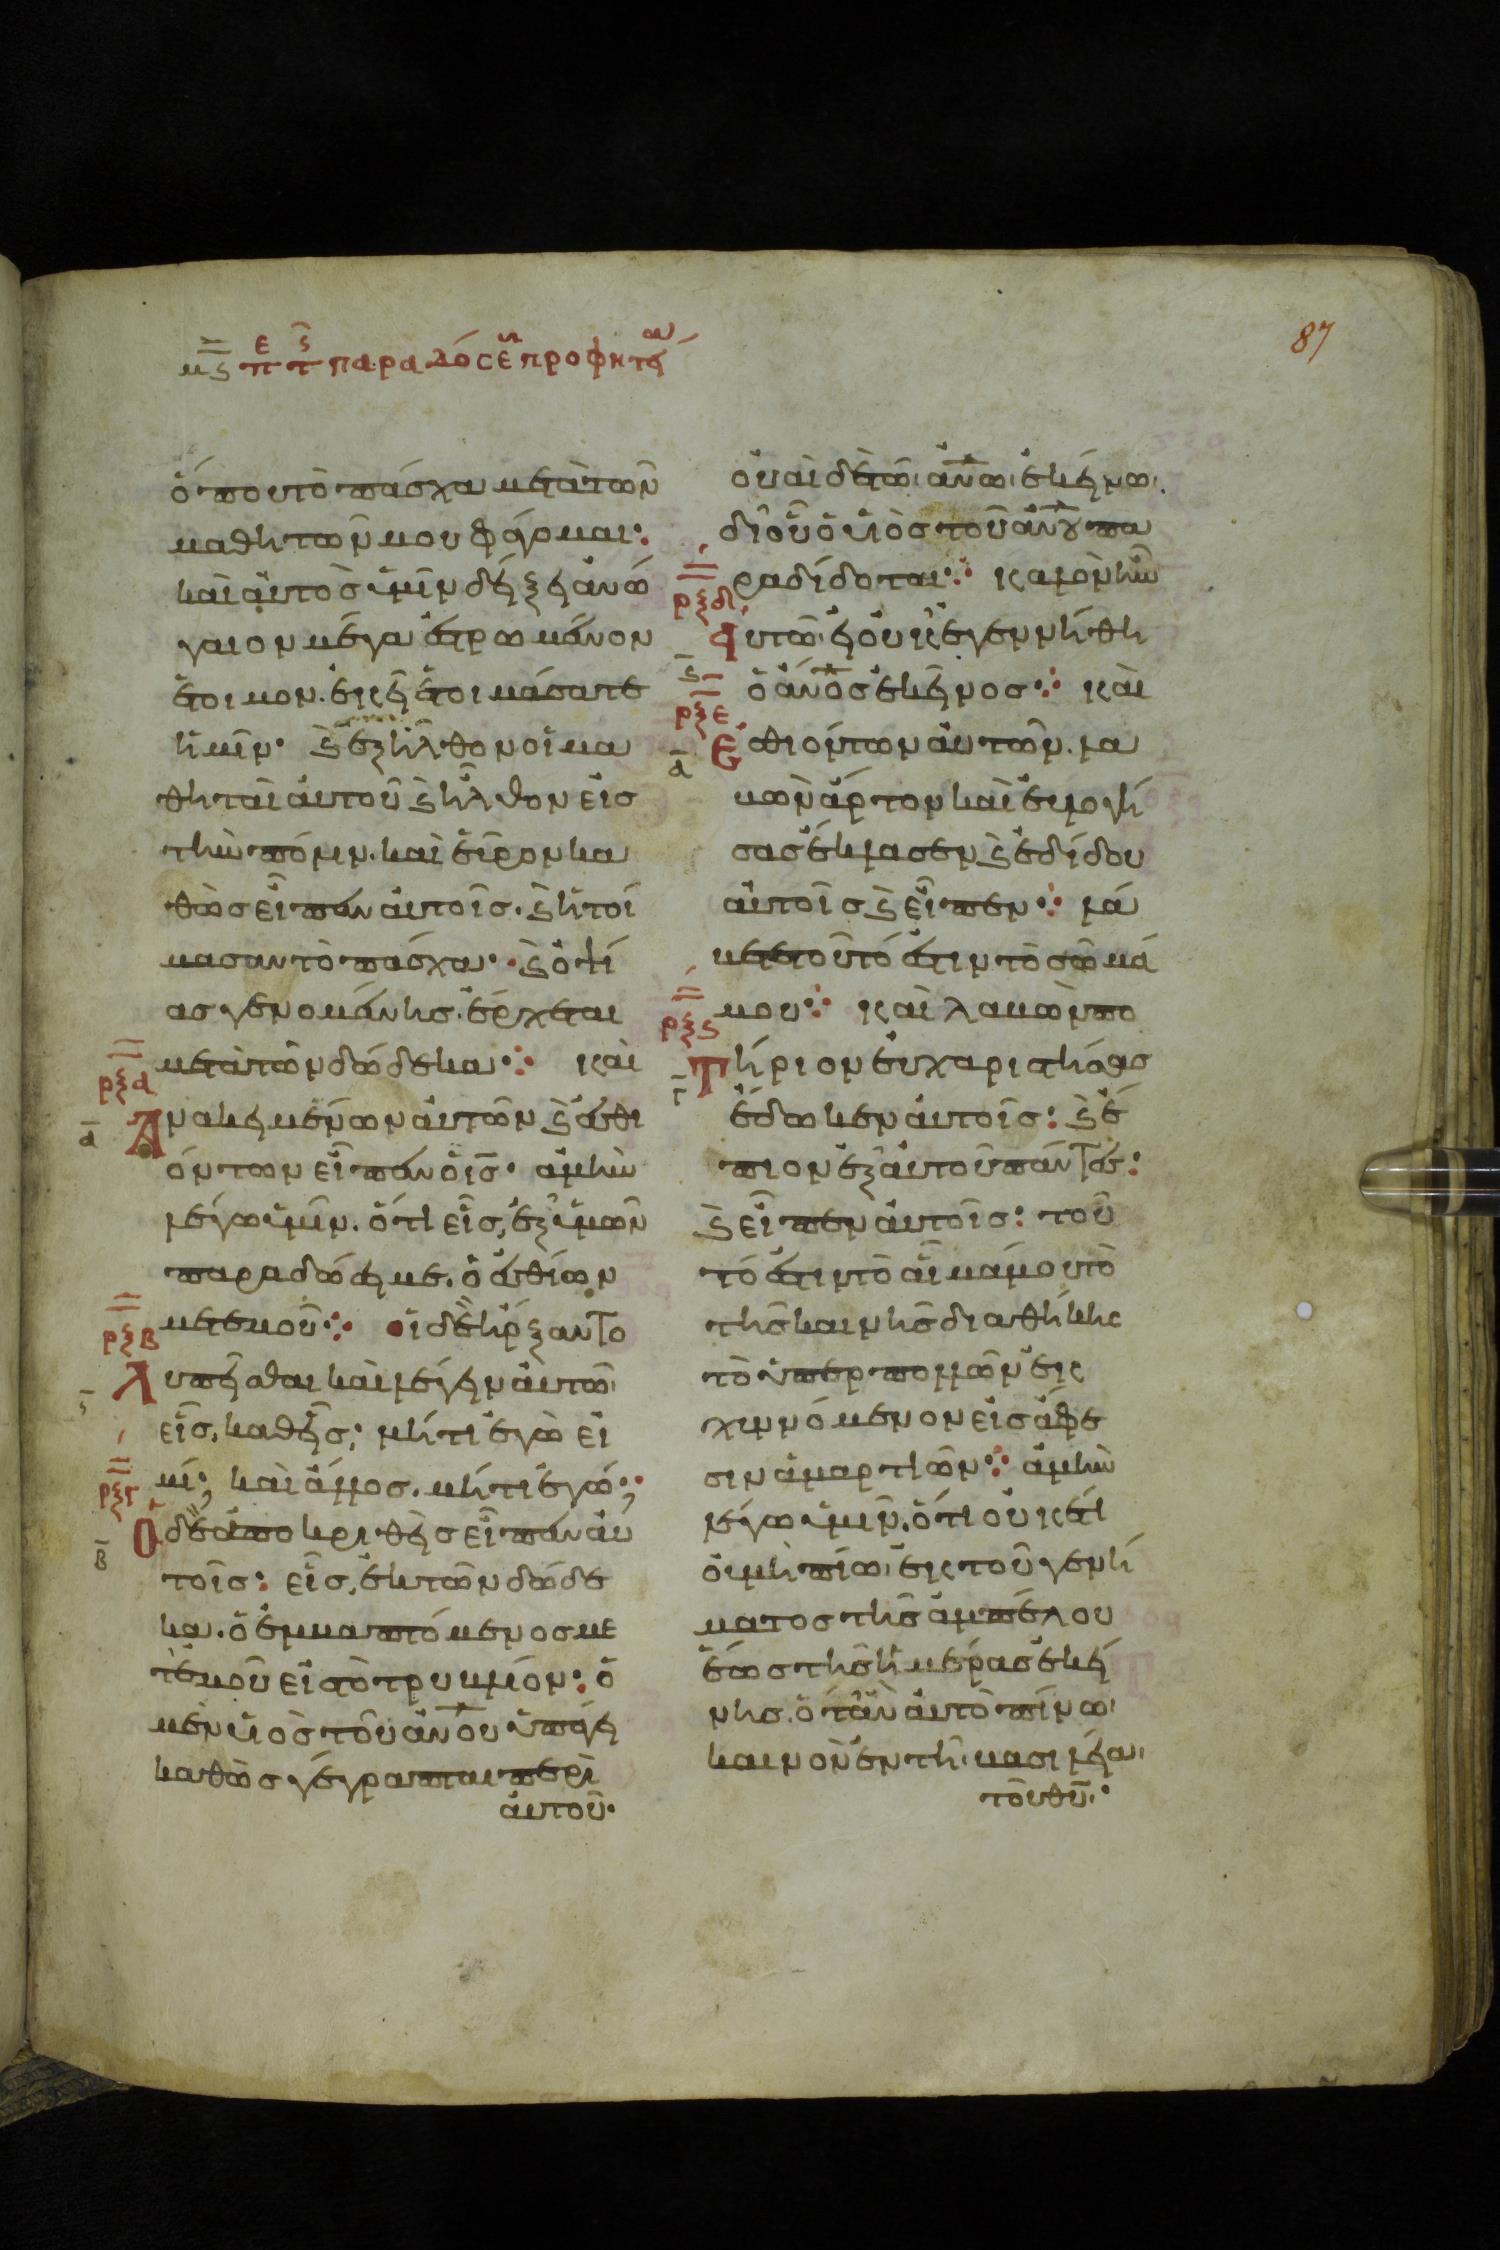 87
μϛ πε τϛ παραδόσεως προφητεία
ὅπου τὸ πάσχα μετὰ τῶν
μαθητῶν μου φάγομαι:
καὶ αὐτὸς ὑμῖν δείξει ἀνώ
γαιον μέγα ἐστρωμένον
ἕτοιμον. ἐκεῖ ἑτοιμάσατε
ἡμῖν· ϗ ἐξῆλθον οἱ μα
θηταὶ αὐτοῦ ϗ ἦλθον εἰσ
τὴν πόλιν. καὶ εὗρον κα
θὼς εἶπεν αὐτοῖς. ϗ ἡτοί
μασαν τὸ πάσχα· ϗ ὀψί
ας γενομένης. ἔρχεται
μετὰ τῶν δώδεκα: καὶ
ρξα
α
Ανακειμένων αὐτῶν ϗ ἐσθι
όντων εἶπεν ὁ ις· ἀμὴν
λέγω ὑμῖν. ὅτι εἷς, ἐξ ὑμῶν
παραδώσει με. ὁ ἐσθίων
μετ' ἐμοῦ: οἱ δὲ ἤρξαντο
ρξβ
Λυπεῖσθαι καὶ λέγειν αὐτῶ
εἷς, καθεῖς; μήτι ἐγὼ εἰ
μί; καὶ ἄλλος. μήτι ἐγώ;
ρξγ
β
Ὁ δὲ ἀποκριθεὶς εἶπεν αὐ
τοῖς: εἷς, ἐκ τῶν δώδε
κα. ὁ ἐμβαπτόμενος με
τ' ἐμοῦ εἰς τὸ τρυβλίον: ὁ
μὲν υἱὸς τοῦ ἀνου ὑπάγει
καθὼς γέγραπται περὶ
αὐτοῦ·
οὐαὶ δὲ τῶ ἀνω ἐκείνω.
δι' οὗ ὁ υἱὸς τοῦ ἀνου πα
ραδίδοται: καλὸν ἦν
ρξδ
ϛ
αυτῶ. εἰ οὐκ ἐγεννήθη
ὁ ἀνος ἐκεῖνος: καὶ
ρξε
α
Εσθιόντων αὐτῶν. λα
βὼν ἄρτον καὶ εὐλογή
σας ἔκλασεν ϗ ἐδίδου
αὐτοῖς ϗ εἶπεν: λά
βετε τοῦτό ἐστιν τὸ σῶμά
μου: καὶ λαβὼν πο
ρξϛ
Τήριον εὐχαριστήσας
ἔδωκεν αὐτοῖς: ϗ ἔ
πιον ἐξ αὐτοῦ πάντες:
ϗ εἶπεν αὐτοῖς: τοῦ
τό ἐστι τὸ αἷμά μου τὸ
τῆς καινῆς διαθήκης
τὸ ὑπὲρ πολλῶν ἐκ
χυννόμενον εἰς ἄφε
σιν ἁμαρτιῶν: ἀμὴν
λέγω ὑμῖν. ὅτι οὐκέτι
οὐ μὴ πίω ἐκ τοῦ γενή
ματος τῆς ἀμπέλου
ἕως τῆς ἡμέρας ἐκεί
νης. ὅταν αὐτὸ πίνω
καινὸν ἐν τῆ βασιλεία
τοῦ θυ·